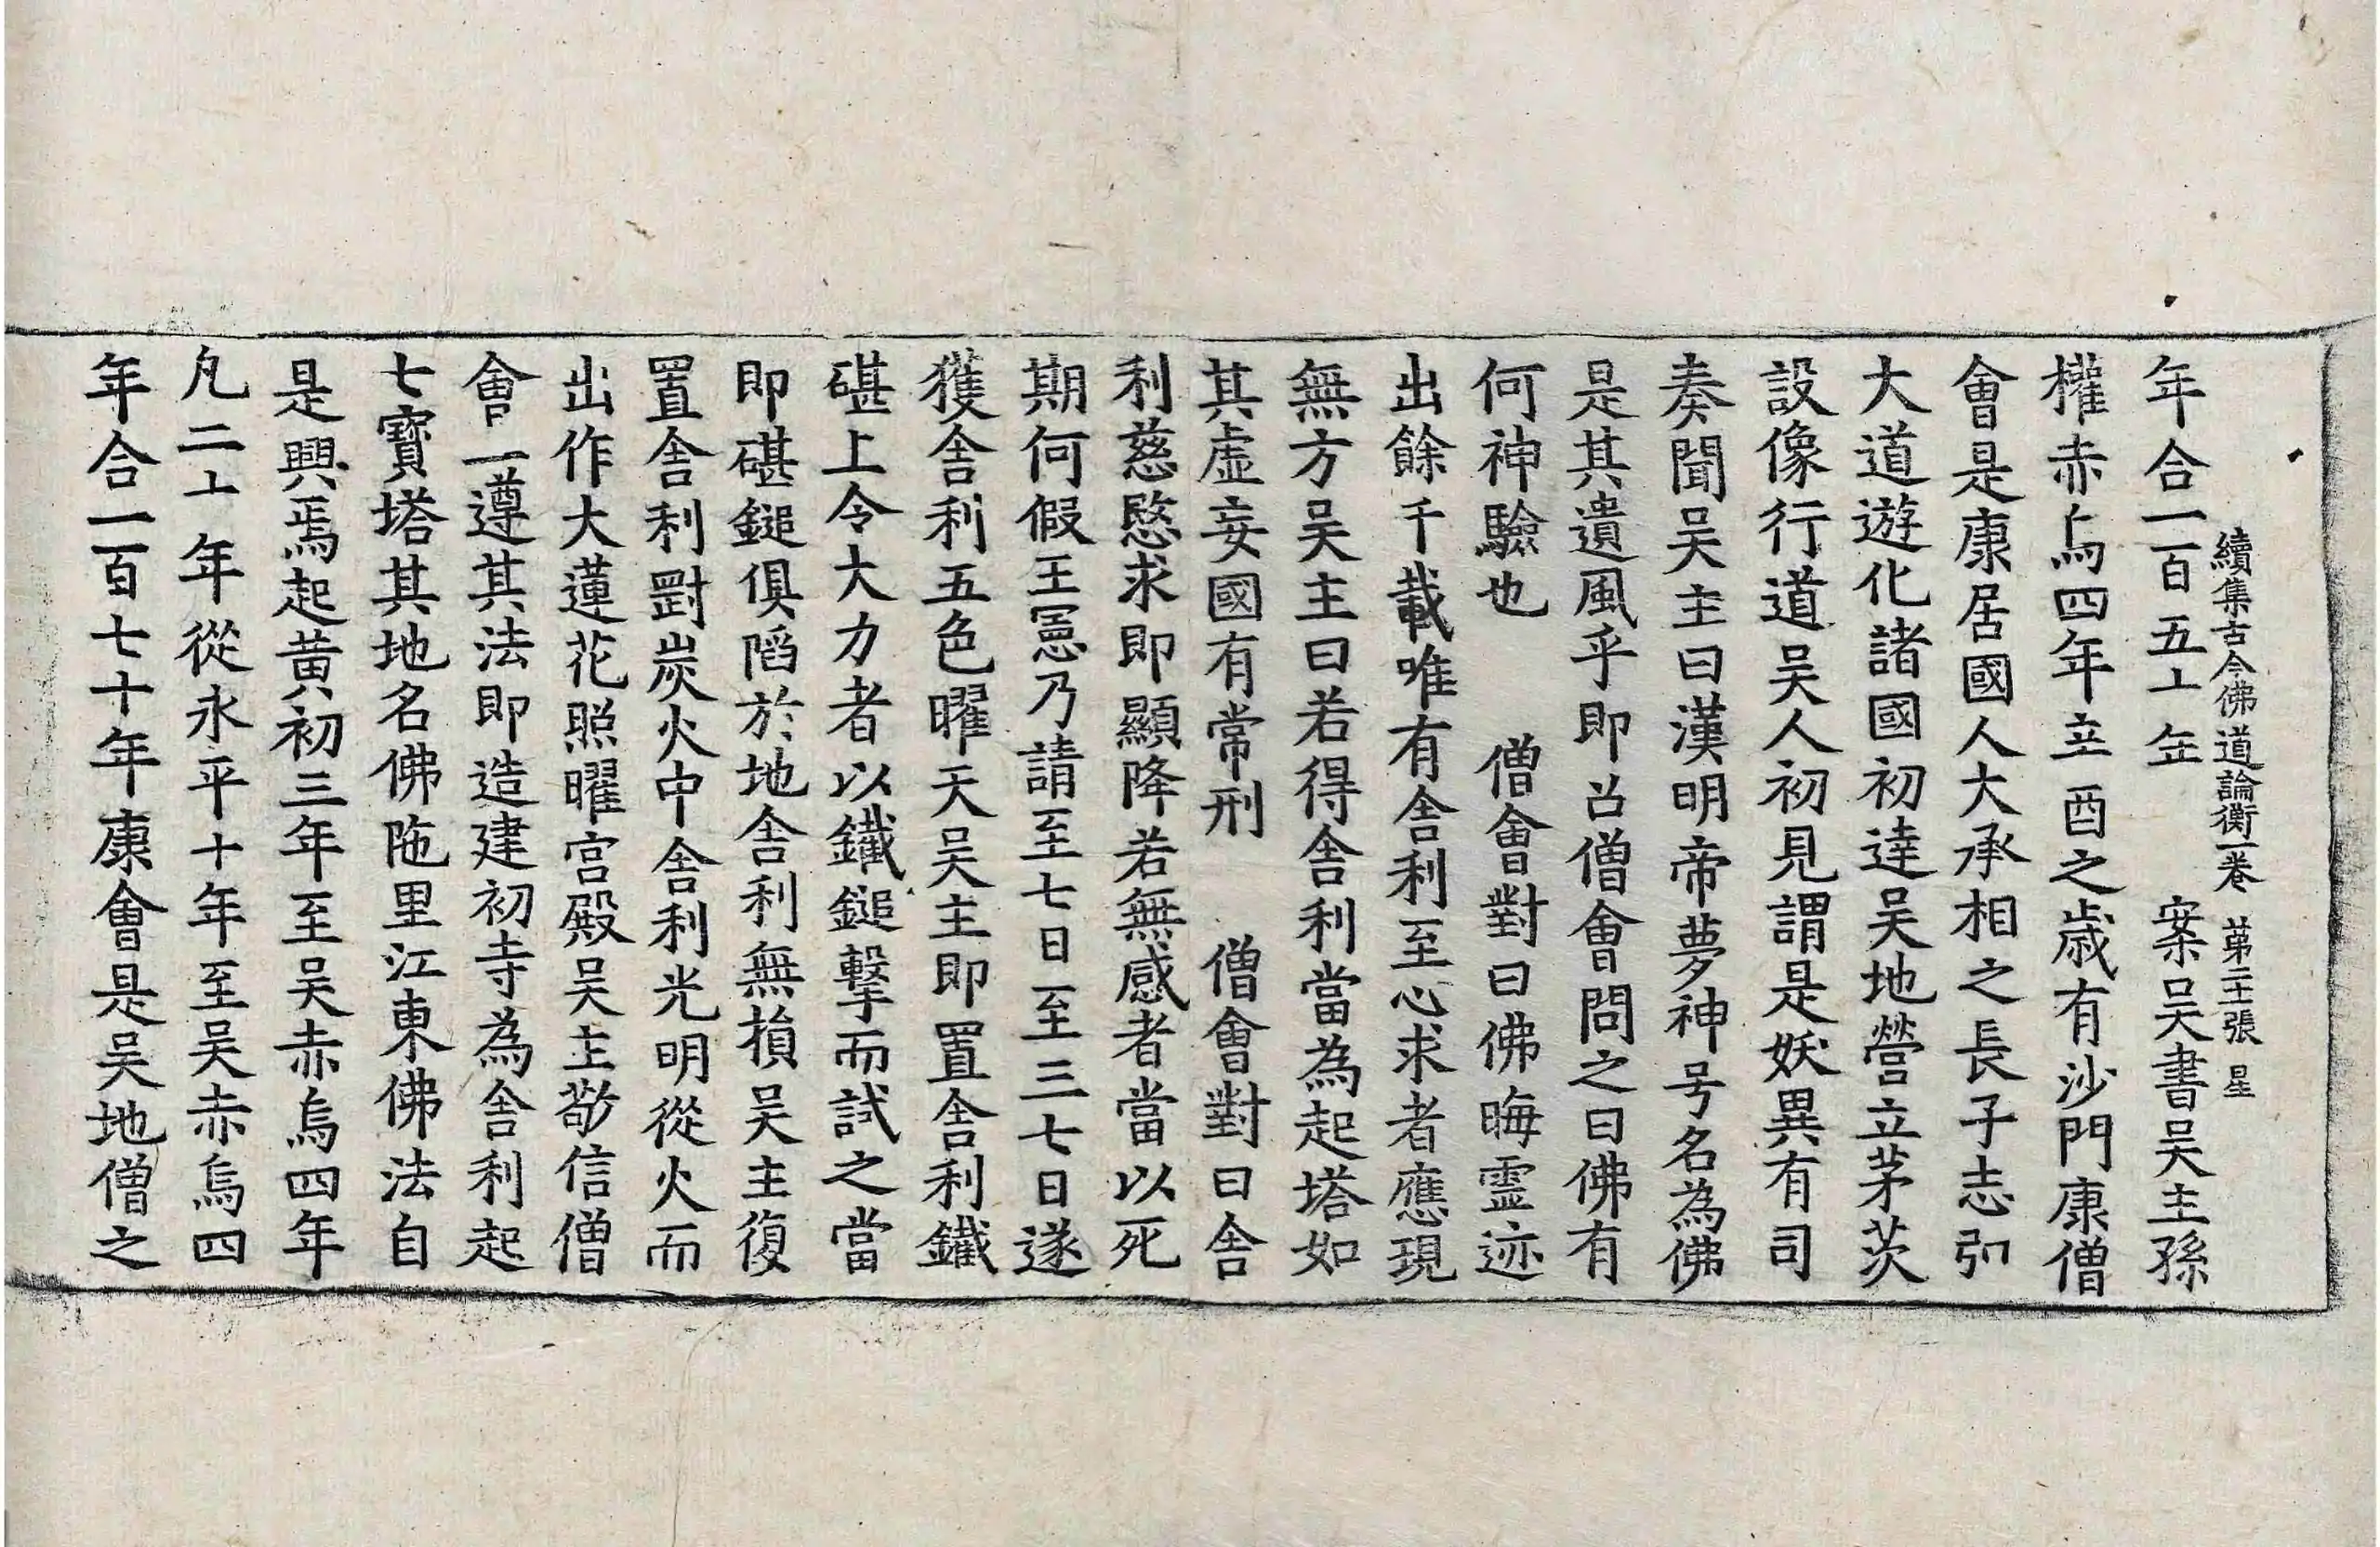 續集古今佛道論衡一卷 苐二十張 星
年合一百五十年 案吴書吴主孫
權赤烏四年辛酉之歳有沙門康僧
會是康居國人大承相之長子志弘
大道遊化諸國初達吴地營立茅茨
設像行道吴人初見謂是妖異有司
奏聞吴主曰漢明帝夢神号名為佛
是其遺風乎即召僧會問之曰佛有
何神驗也 僧會對曰佛晦霊迹
出餘千載唯有舍利至心求者應現
無方吴主曰若得舍利當為起塔如
其虛妄國有常刑 僧會對曰舍
利慈愍求即顯降若無感者當以死
期何假王憲乃請至七日至三七日遂
獲舍利五色曜天吴主即置舍利鐵
碪上令大力者以鐵鎚擊而試之當
即碪鎚俱陷於地舍利無損吴主復
置舍利劄炭火中舍利光明從火而
出作大蓮花照曜宮殿吴主敬信僧
會一遵其法即造建初寺為舍利起
七寶塔其地名佛陁里江東佛法自
是興焉起黄初三年至吴赤烏四年
凡二十年從永平十年至吴赤烏四
年合一百七十年康會是吴地僧之